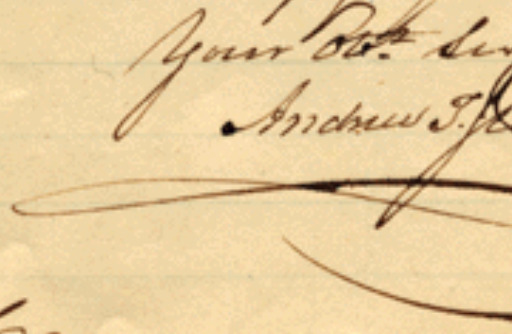 Your Obt. Ser
Andrew T. J